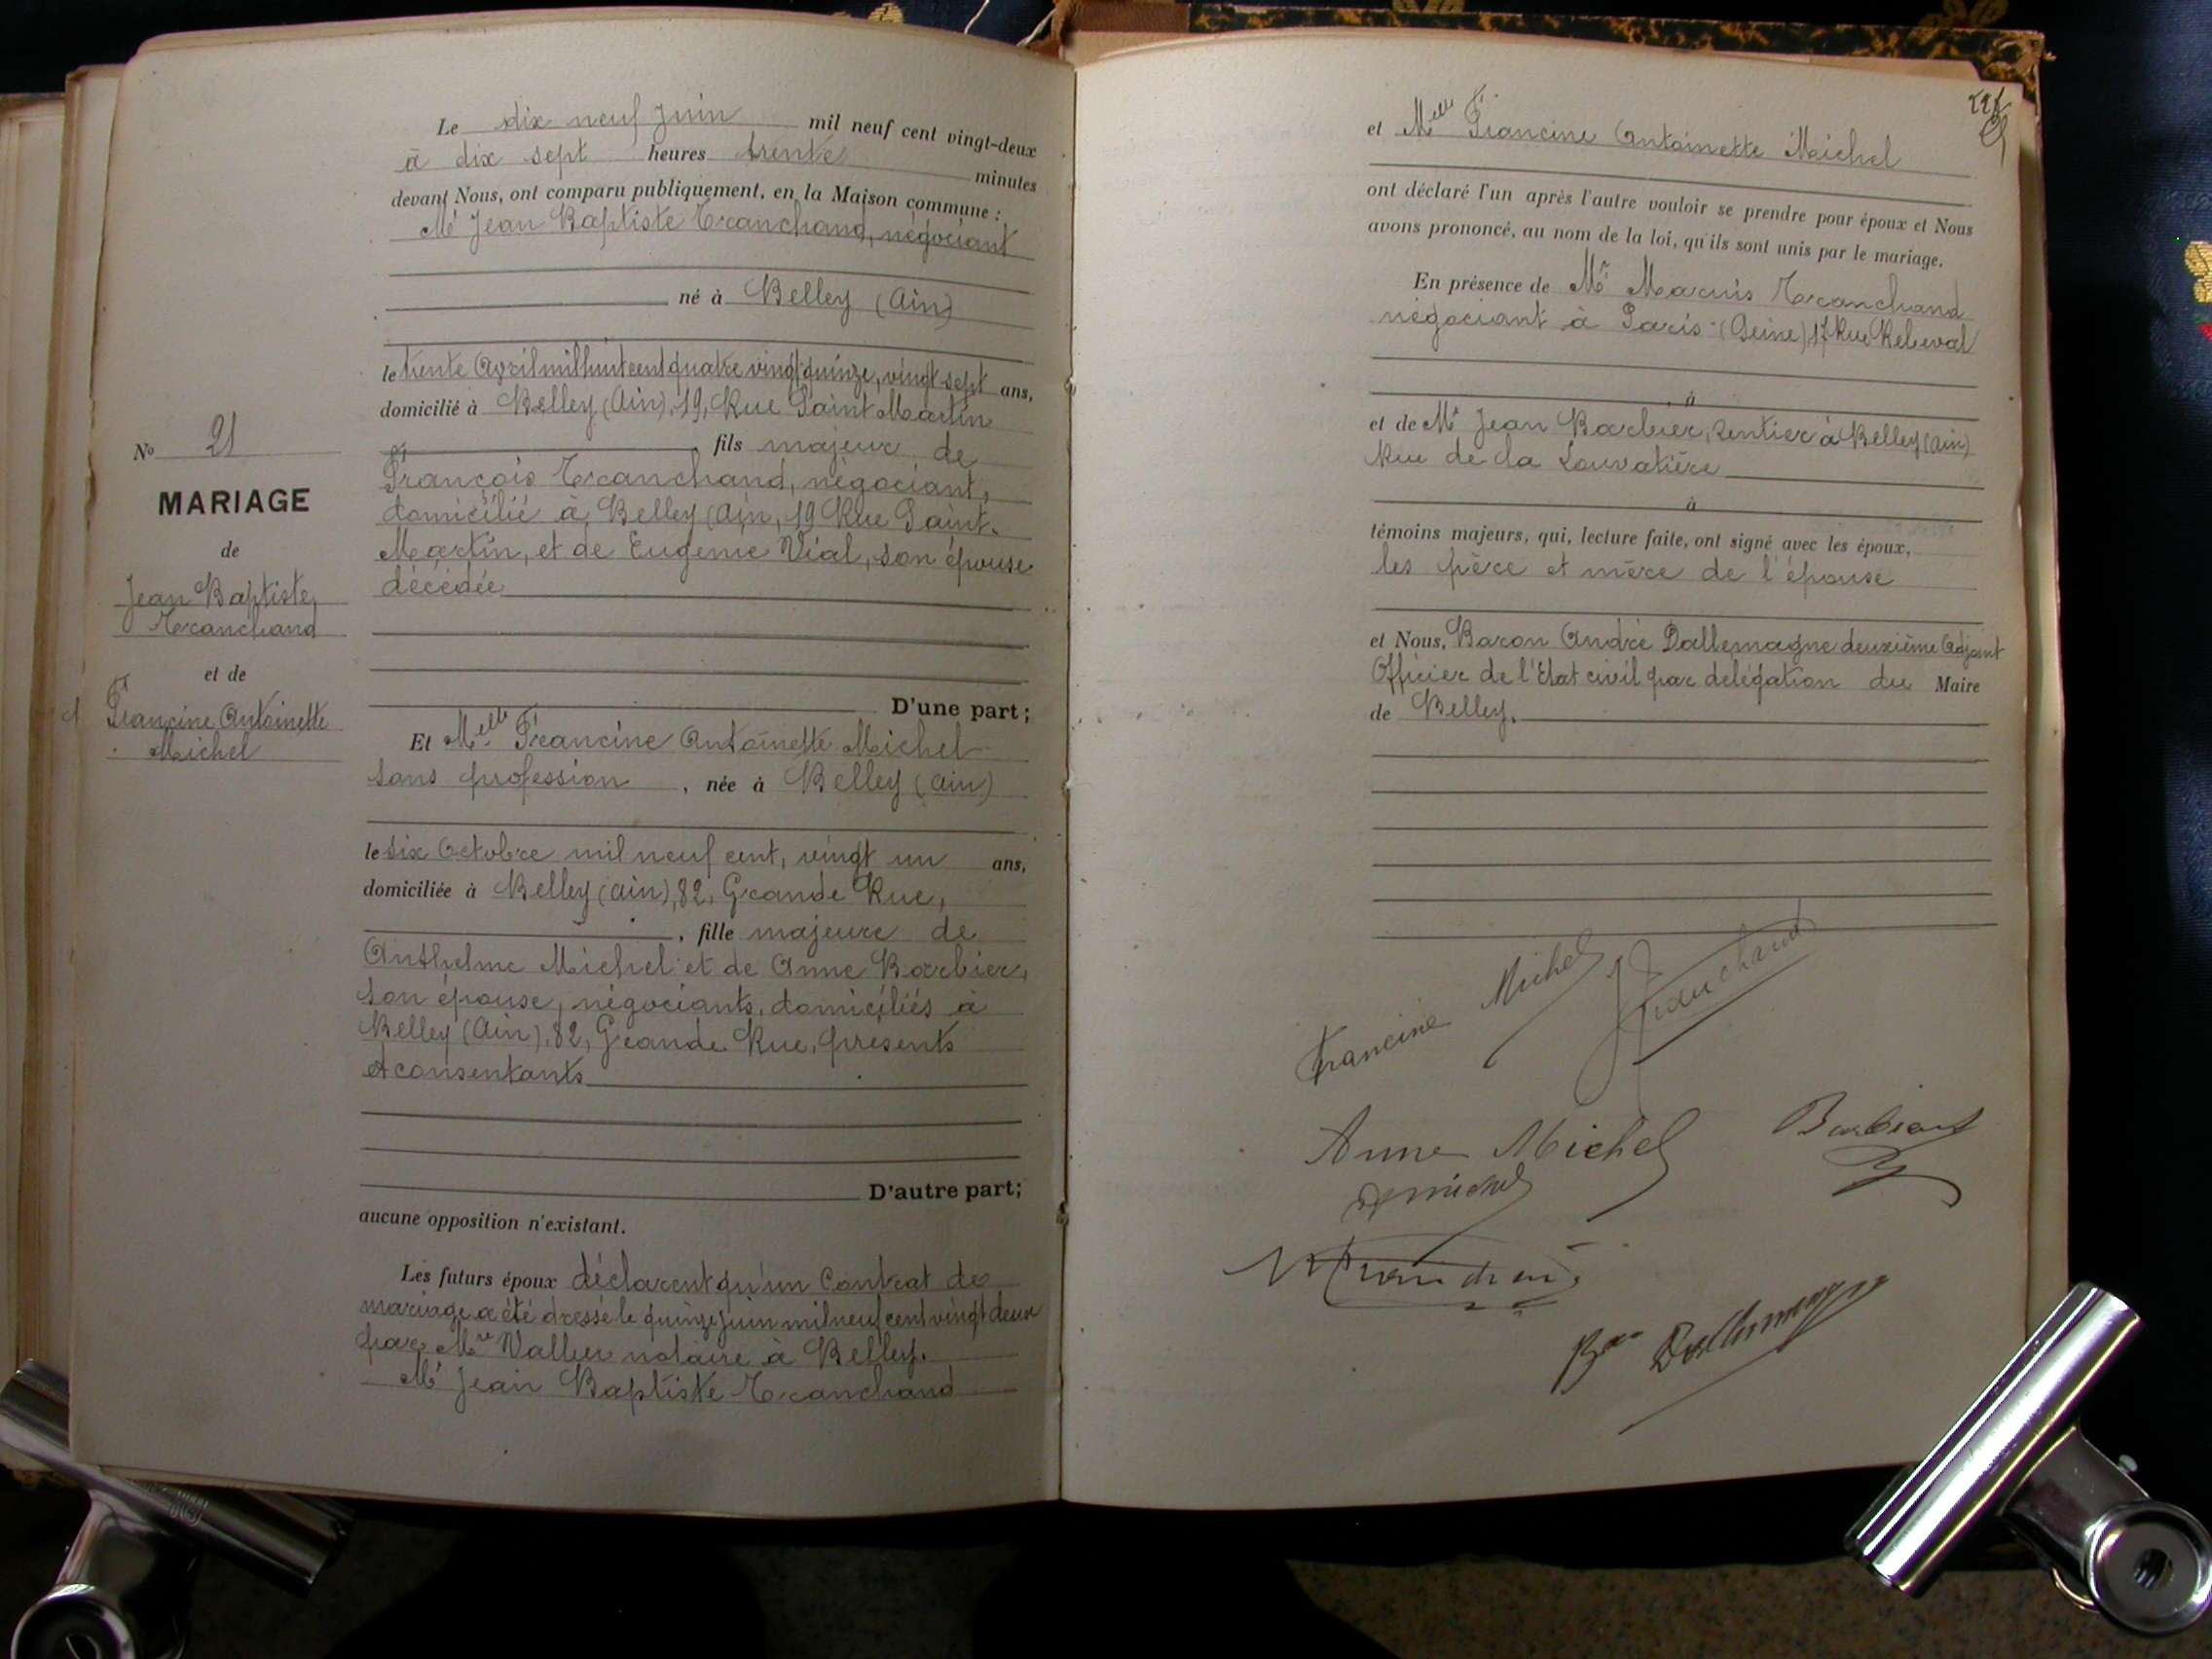 Le dix neuf Juin mil neuf cent vingt-deux
à dix sept heures trente minutes
devant Nous, ont comparu publiquement, en la Maison commune :
Mr Jean Baptiste Tranchand, négociant
né à Belley (Ain)
le trente Avril mil huit cent quatre vingt quinze, vingt-sept ans,
domicilié à Belley (Ain), 19, Rue Saint Martin
, fils majeur de
François Tranchand, négociant,
domicilié à Belley (Ain, 19 Rue Saint-
Martin, et de Eugénie Vial, son épouse
décédée
D'une part ;
Et Melle Francine Antoinette Michel
sans profession, née à Belley (Ain)
le six Octobre mil neuf cent, vingt un ans,
domiciliée à Belley (Ain), 82, Grande Rue,
, fille majeure de
Anthelme Michel et de Anne Barbier,
son épouse, négociants, domiciliés à
Belley (Ain), 82, Grande Rue, présents
et consentants
D'autre part ;
aucune opposition n'existant.
Les futurs époux déclarent qu'un Contrat de
mariage a été dressé le quinze juin mil neuf cent vingt deux
par Me Vallier notaire à Belley.
Mr Jean Baptiste Tranchand
No 21
MARIAGE
de
Jean Baptiste
Tranchand
et de
Francine Antoinette
Michel
et Melle Francine Antoinette Michel
ont déclaré l'un après l'autre vouloir se prendre pour époux et Nous
avons prononcé, au nom de la loi, qu'ils sont unis par le mariage.
En présence de Mr Marius Tranchand
négociant à Paris (Seine), 17 Rue Rebeval
à
et de Mr Jean Barbier, rentier à Belley (Ain)
Rue de la Louvatière
à
témoins majeurs, qui, lecture faite, ont signé avec les époux,
les père et mère de l'épouse
et Nous, Baron André Dallemagne deuxième Adjoint
Officier de l'Etat civil par délégation du Maire
de Belley.
Francine Michel
Tranchand
Anne Michel
Michel
Bon Dallemagne